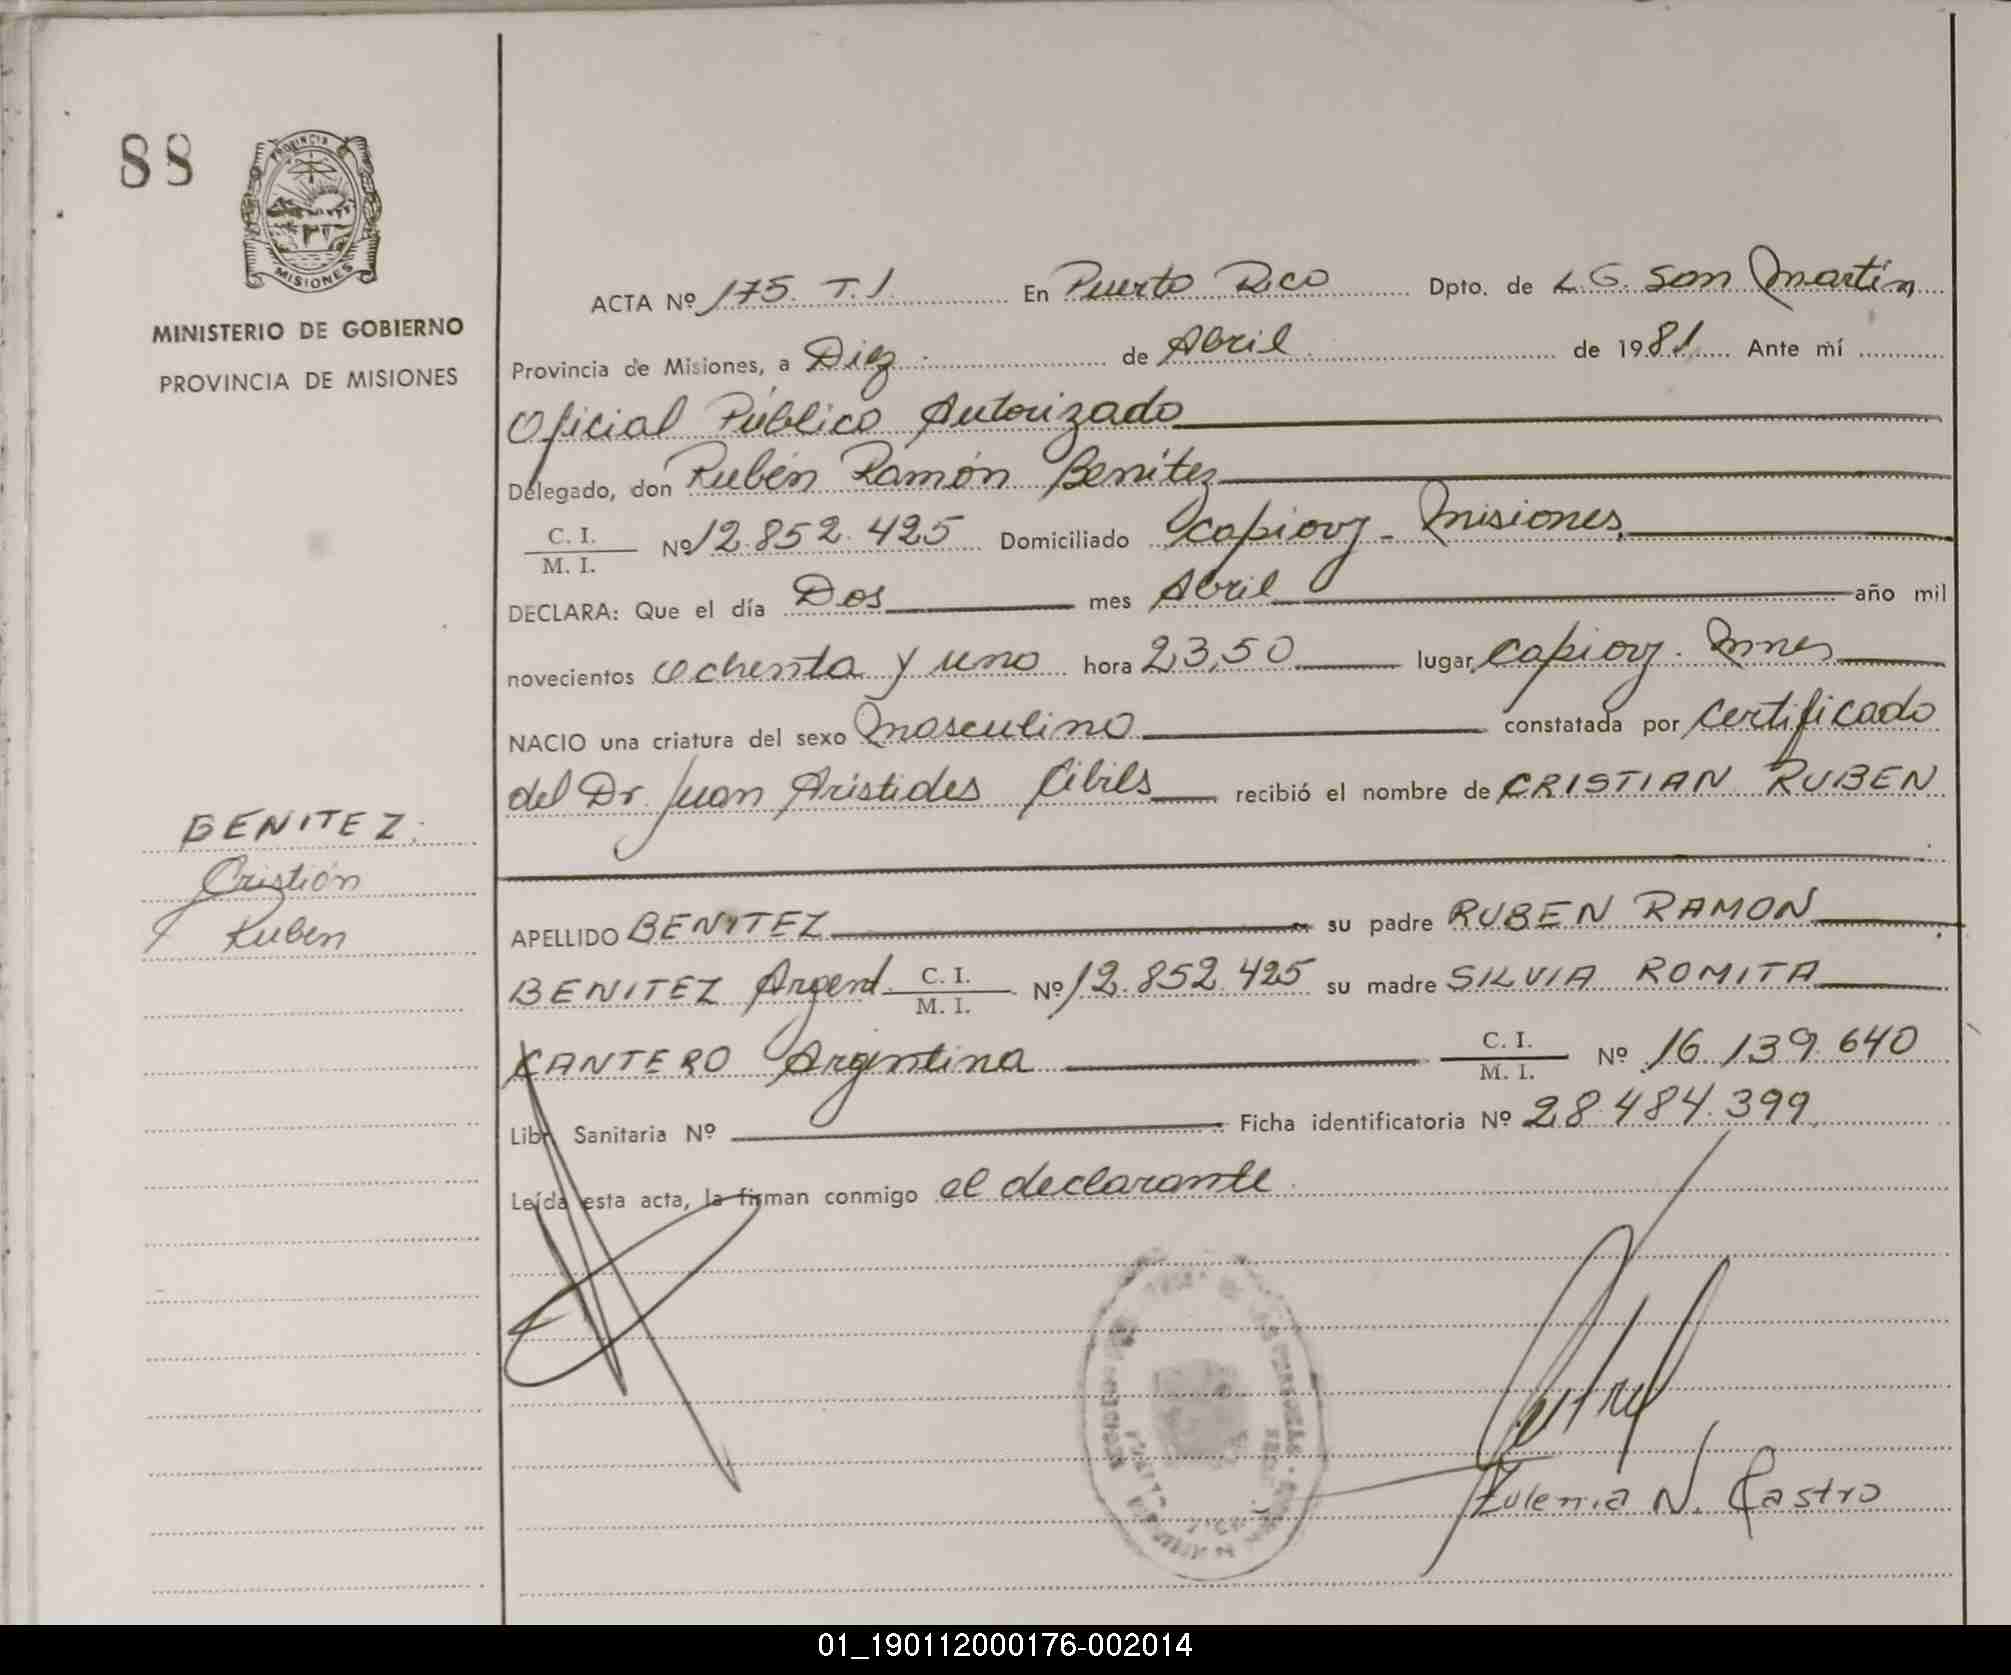 88
PROVINCIA
MISIONES
MINISTERIO DE GOBIERNO
PROVINCIA DE MISIONES
BENITEZ
Cristián
Ruben
ACTA Nº 175. T.I. En Puerto Rico Dpto. de L.G. San Martín
Provincia de Misiones, a Diez de Abril de 1981 Ante mí
Oficial Público Autorizado
Delegado, don Rubén Ramón Benítez
C. I.
M. I.
Nº 12.852.425 Domiciliado Capiovy - Misiones
DECLARA: Que el día Dos mes Abril año mil
novecientos ochenta y uno hora 23,50 lugar Capiovy. Mnes
NACIO una criatura del sexo Masculino constatada por certificado
del Dr. Juan Arístides Cibils recibió el nombre de CRISTIAN RUBEN
APELLIDO BENITEZ su padre RUBEN RAMON
BENITEZ Argent. C. I. M. I. Nº 12.852.425 su madre SILVIA ROMITA
CANTERO Argentina C. I. M. I. Nº 16.139.640
Libr Sanitaria Nº Ficha identificatoria Nº 28.484.399
Leída esta acta, la firman conmigo el declarante
Zulema N. Castro
01_190112000176-002014